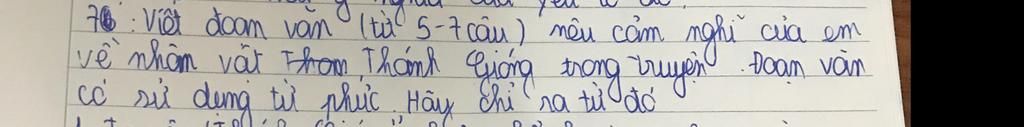 76. Viết đoạn văn (từ 5-7 câu) nêu cảm nghĩ của em
về nhân vật Thánh Gióng trong truyện. Đoạn văn
có sử dụng từ phức. Hãy chỉ ra từ đó